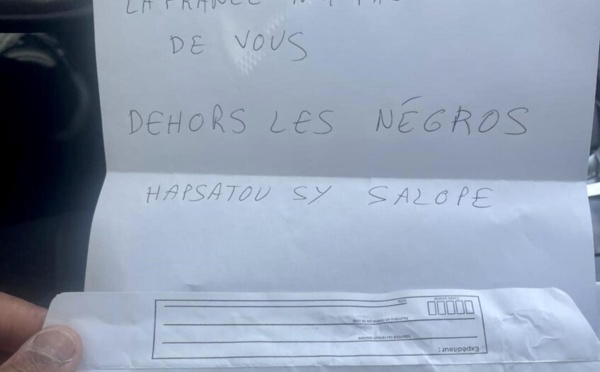 LA FRANCE
DE VOUS
DEHORS LES NÉGROS
HAPSATOU SY SALOPE
Expéditeur :